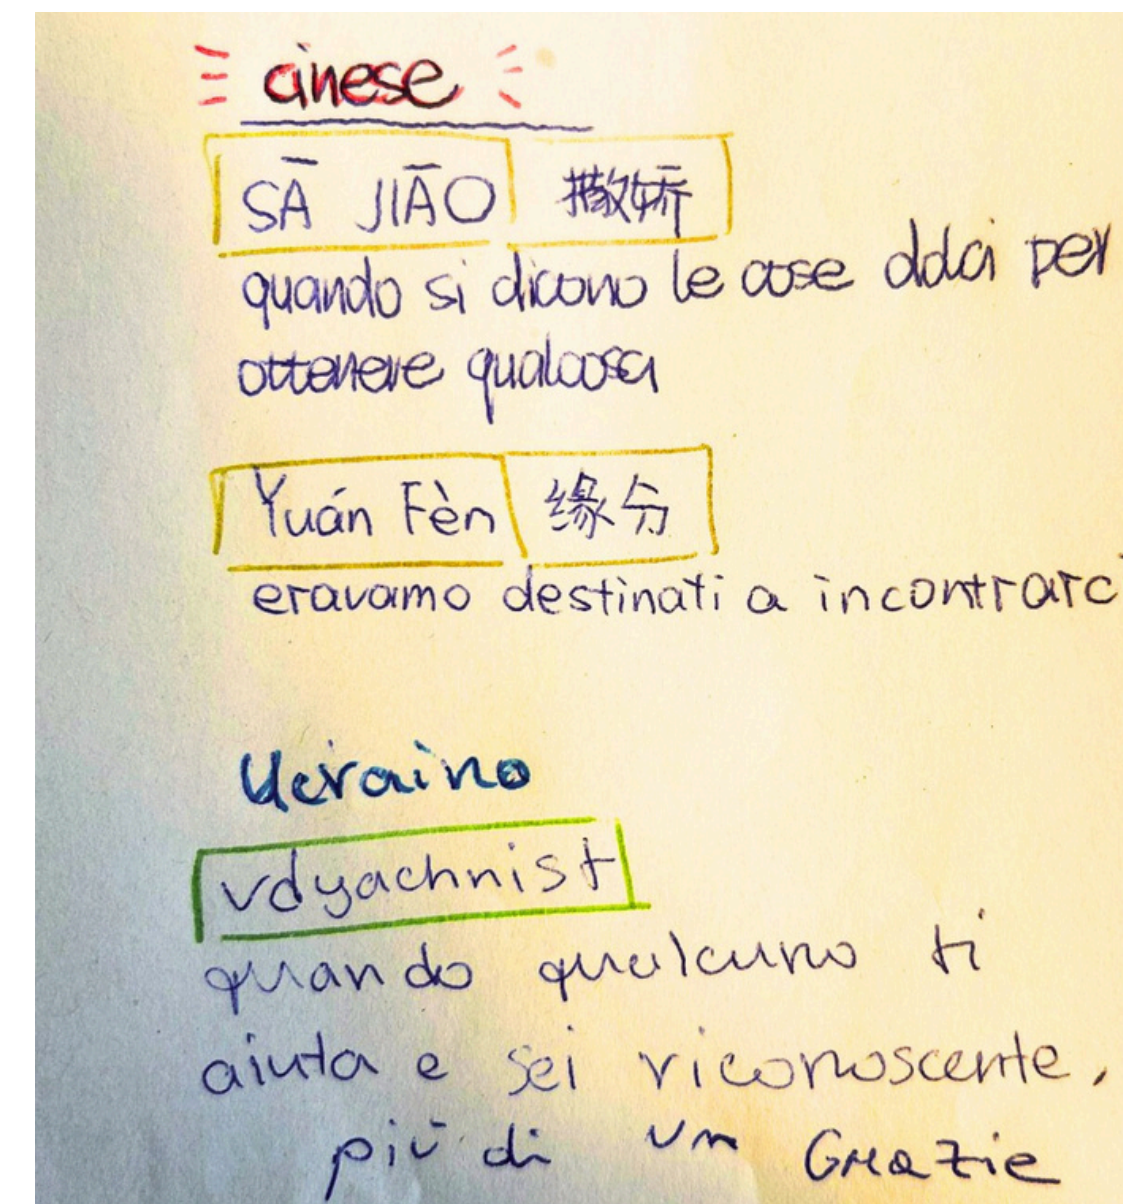 cinese
SĀ JIĀO 撒娇
quando si dicono le cose dolci per
ottenere qualcosa
Yuán Fèn 缘分
eravamo destinati a incontrarc
Ucraino
vdyachnist
quando qualcuno ti
aiuta e sei riconoscente,
più di un Grazie